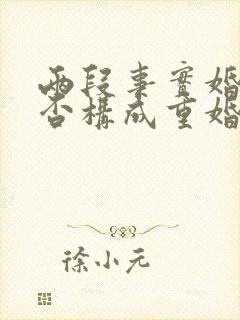 兩段事實婚
否構成重婚
徐小元